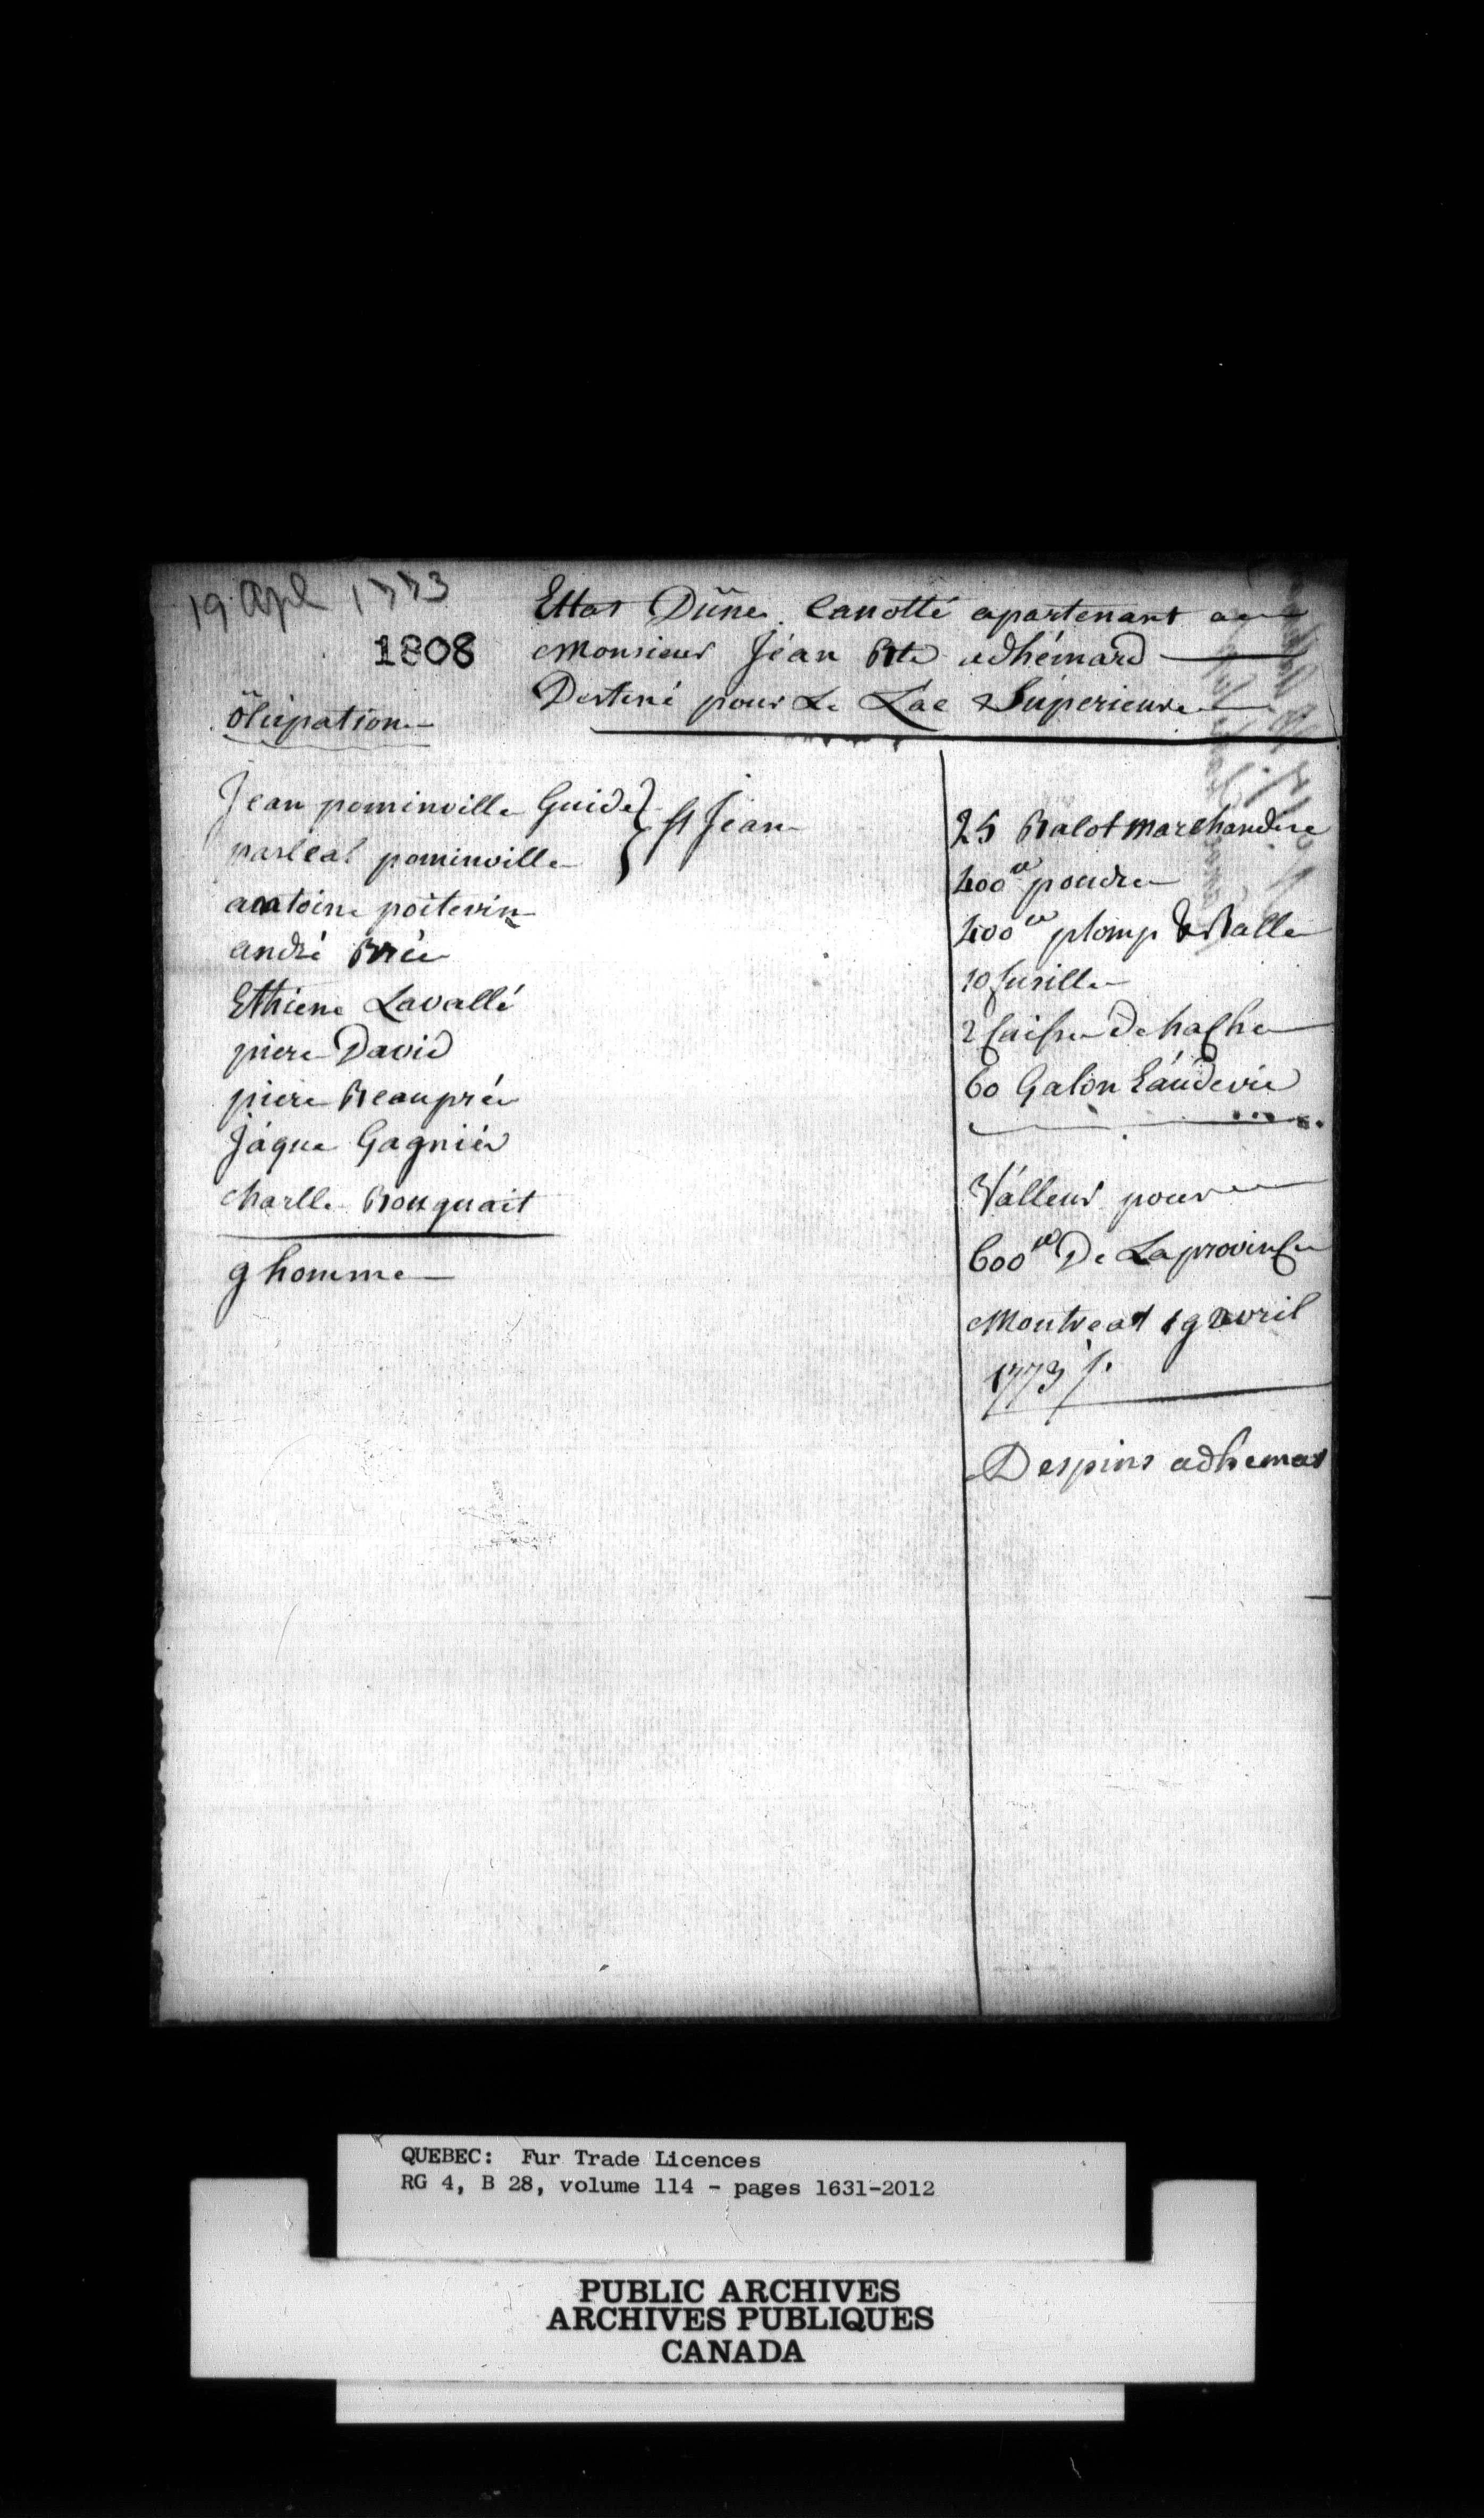 19 Apl 1773
1808
Ettat D'üne Canotté apartenant au
Monsieur Jéan Bte adhémard
Destiné pour Le Lac Supérieure
öccupation
Jean pominville Guide } St Jean
pascal pominville
antoine poitevin
andré Brée
Ethiene Lavallé
piere David
piere Beauprée
Jâque Gagniér
charlle Bouquait
9 homme
25 Balot marchandise
400 ll poudre
400 ll plomp & Balle
10 fusille
2 Caisse De hache
60 Galon Eáúdevie
Válleur pour
600 ll De La province
Montreal 19 avril
1773 /.
Despins adhemar
QUEBEC: Fur Trade Licences
RG 4, B 28, volume 114 - pages 1631-2012
PUBLIC ARCHIVES
ARCHIVES PUBLIQUES
CANADA